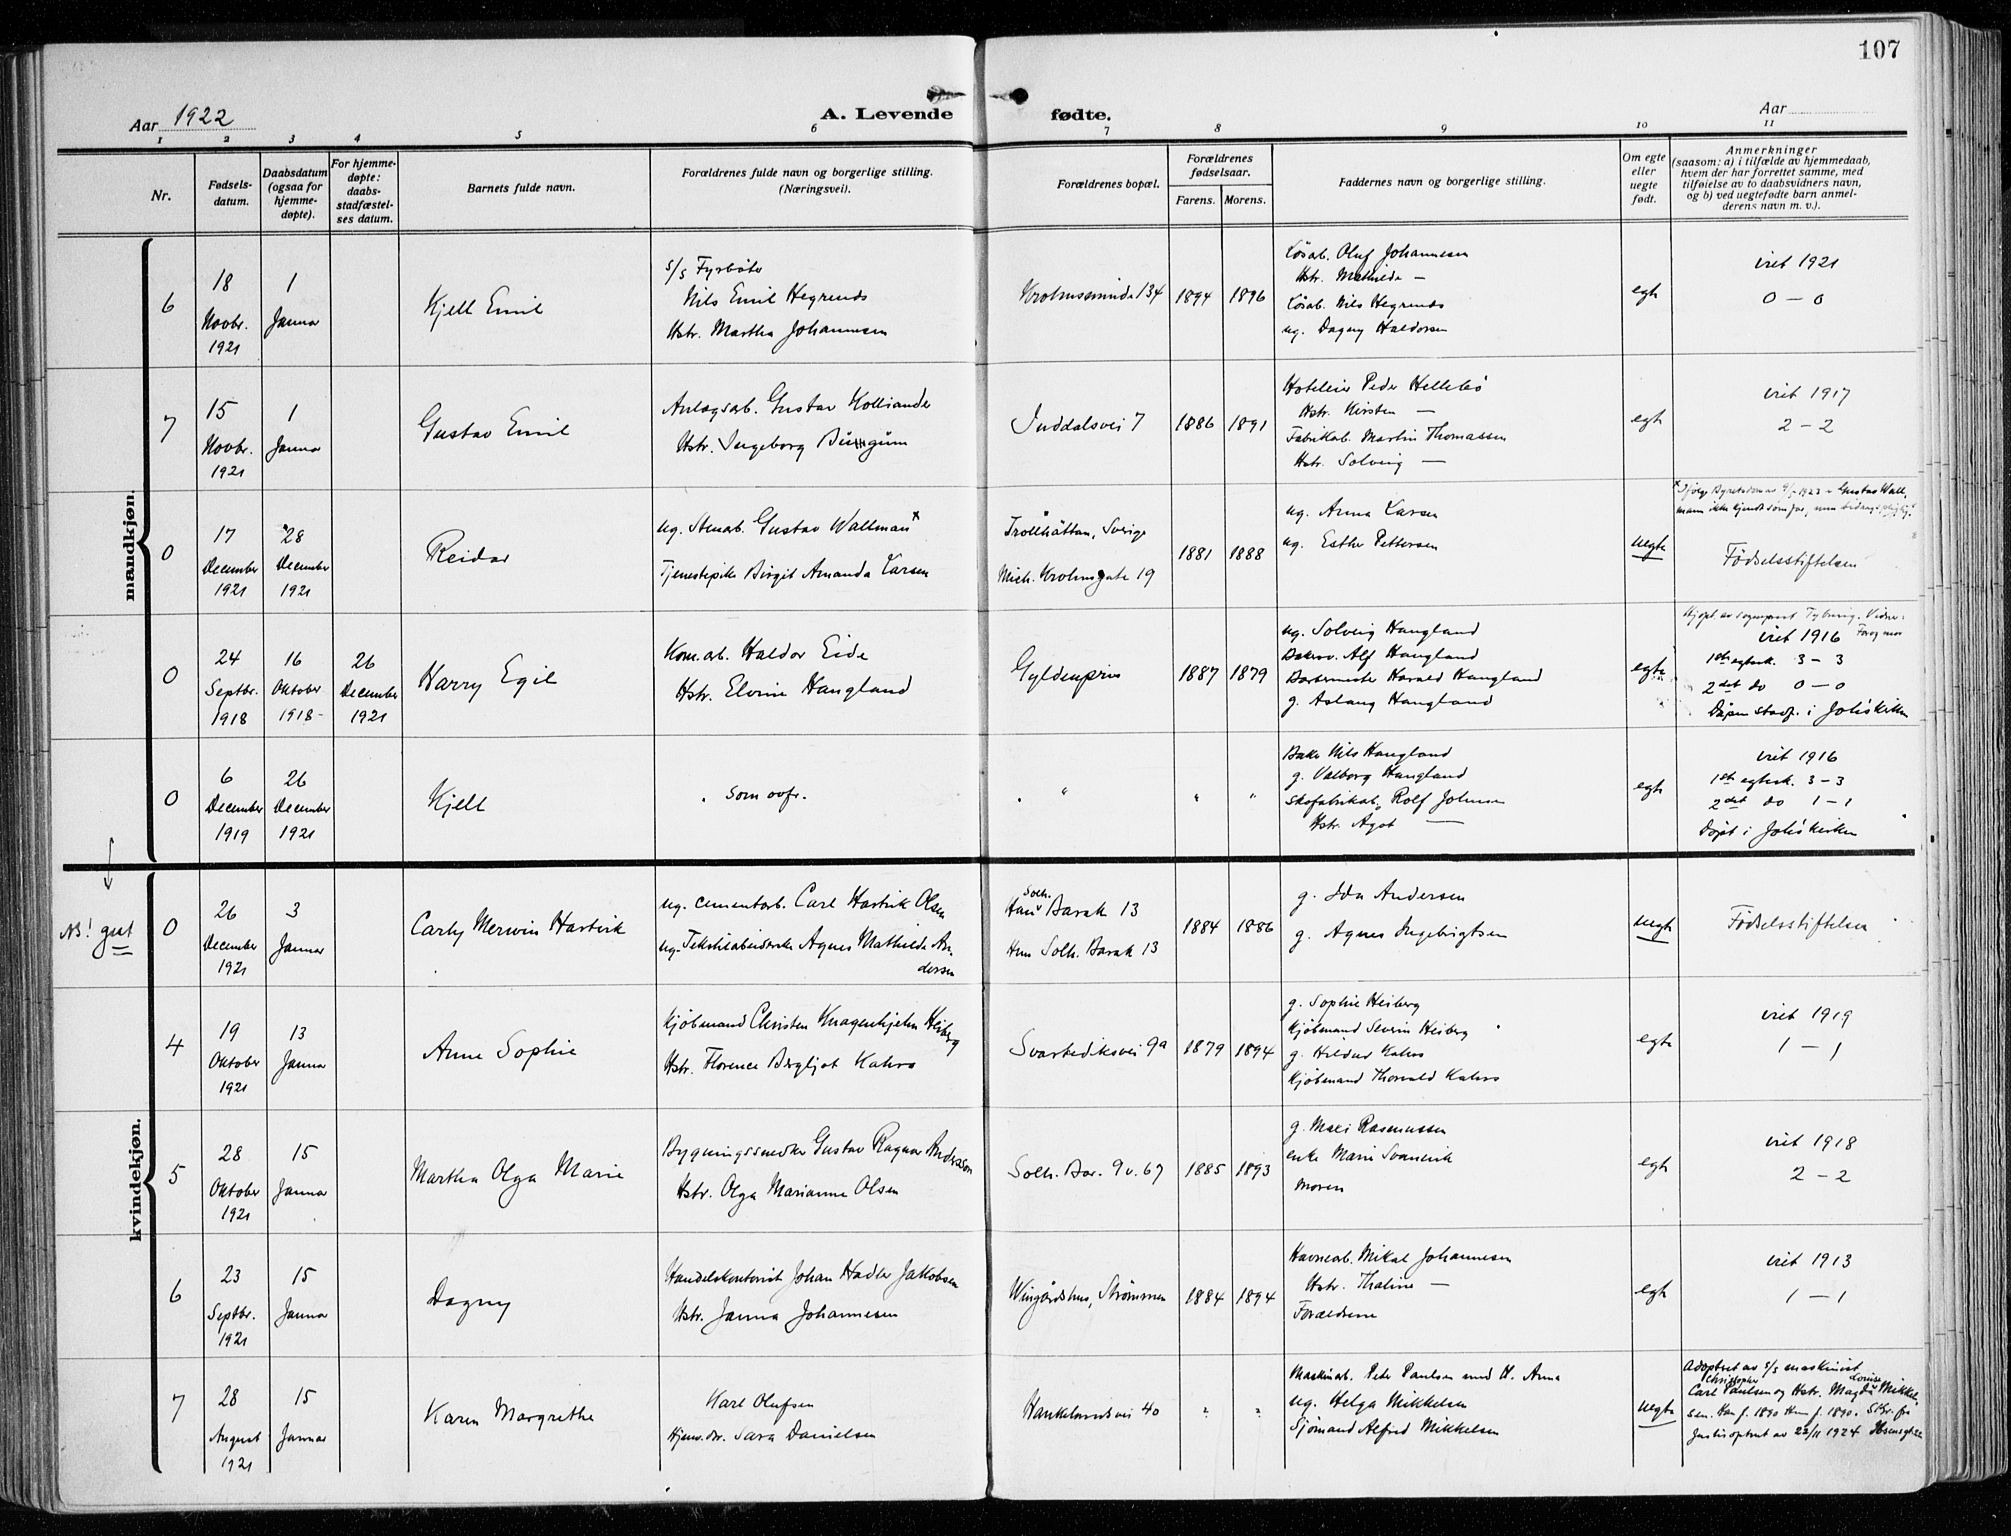 107
Aar 1922
A. Levende fødte.
Aar
1 2 3 4 5 6 7 8 9 10 11
Nr.
Fødsels-
datum.
Daabsdatum
(ogsaa for
hjemme-
døpte).
For hjemme-
døpte:
daabs-
stadfæstel-
ses datum.
Barnets fulde navn.
Forældrenes fulde navn og borgerlige stilling.
(Næringsvei).
Forældrenes bopæl.
Forældrenes
fødselsaar.
Farens. Morens.
Faddernes navn og borgerlige stilling.
Om egte
eller
uegte
født.
Anmerkninger
(saasom: a) i tilfælde av hjemmedaab,
hvem der har forrettet samme, med
tilføielse av to daabsvidners navn,
og b) ved uegtefødte barn anmel-
derens navn m. v.).
mandkjøn.
6
18
Novbr.
1921
1
Januar
Kjell Emil
s/s Fyrbøter
Nils Emil Hegrenes
Hstr. Martha Johannesen
Krohnsminde 134
1894
1896
Løsarb. Oluf Johannesen
Hstr. Mathilde —
Løsarb. Nils Hegrenes
ug. Dagny Haldorsen
egte
viet 1921
0 — 0
7
15
Novbr.
1921
1
Januar
Gustav Emil
Anlægsarb. Gustav Holliander
Hstr. Ingeborg
Inddalsvei 7
1886
1891
Hoteleier Peder Hellebø
Hstr. Kirsten —
Fabrikab. Martin Thomassen
Hstr. Solveig —
egte
viet 1917
2 — 2
0
17
December
1921
28
December
1921
Reidar
ug. Stenarb. Gustav Wallman x
Tjenestepike Birgit Amanda Larsen
Trollhättan, Sverige
Mich. Krohnsgate 19
1881
1888
ug. Anna Larsen
ug. Esther Pettersen
uegte
Gustav Wall-
mann ikke kjendt som far, men bidragspligtig.
Fødselsstiftelsen
0
24
Septbr.
1918
16
Oktober
1918
26
December
1921
Harry Egil
Kom.arb. Haldor Eide
Hstr. Elvine Haugland
Gyldenpris
1887
1879
ug. Solveig Haugland
Bakersv. Alf Haugland
Bakermester Harald Haugland
g. Aslaug Haugland
egte
Hjdøpt av sogneprest Vidner:
viet 1916
1ste egtesk. 3 — 3
2det do 0 — 0
Dåpen stadf. i Johskirken
0
6
December
1919
26
December
1921
Kjell
som ovfr.
"
"
"
Baker Nils Haugland
g. Valborg Haugland
Skofabrikarb. Rolf Johnsen
Hstr. Agot —
egte
viet 1916
1ste egtesk. 3 — 3
2det do 1 — 1
Døpt i Johskirken
kvindekjøn.
NB! gut
0
26
December
1921
3
Januar
Carly Merwin Hartvik
ug. cementarb. Carl Hartvik Olsen
ug. Tekstilarbeiderske Agnes Mathilde An-
dersen
Solh.
Han Barak 13
Hun Solh. Barak 13
1884
1886
g. Ida Andersen
g. Agnes Ingebrigtsen
uegte
Fødselsstiftelsen
4
19
Oktober
1921
13
Januar
Anne Sophie
Kjøbmand Christen Knagenhjelm Heiberg
Hstr. Florence Bergljot Kahrs
Svartediksvei 9a
1879
1894
g. Sophie Heiberg
Kjøbmand Severin Heiberg
g. Hildur Kahrs
Kjøbmand Thorvald Kahrs
egte
viet 1919
1 — 1
5
28
Oktober
1921
15
Januar
Martha Olga Marie
Bygningssnedker Gustav Ragnar Andersson
Hstr. Olga Marianne Olsen
Solh. Bar. 9 v. 67
1885
1893
g. Maxi Rasmussen
enke Marie Svanevik
Moren
egte
viet 1918
2 — 2
6
23
Septbr.
1921
15
Januar
Dagny
Handelskontorist Johan Hadler Jakobsen
Hstr. Janna Johannesen
Wingårdshus, Strømmen
1884
1894
Havnearb. Mikal Johannesen
Hstr. Thaline —
Forældrene
egte
viet 1913
1 — 1
7
28
August
1921
15
Januar
Karen Margrethe
Karl Olufsen
Hjemv. Sara Danielsen
Haukelandsvei 40
?
?
Maskinarb. Peter Paulsen med H. Anna
ug. Helga Mikkelsen
Sjømand Alfred Mikkelsen
uegte
Adoptert av s/s maskinist
Christopher Louise
Carl Paulsen og Hstr. Magda Mikkel-
sen. Han f. 1890 Hun f. 1890. Skr. fra
Justisdeptet av 22/11 1924